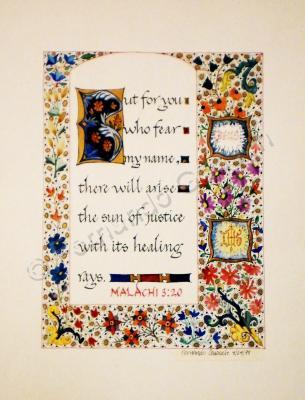 But for you
who fear
my name,
there will arise
the sun of justice
with its healing
rays.
MALACHI 3:20